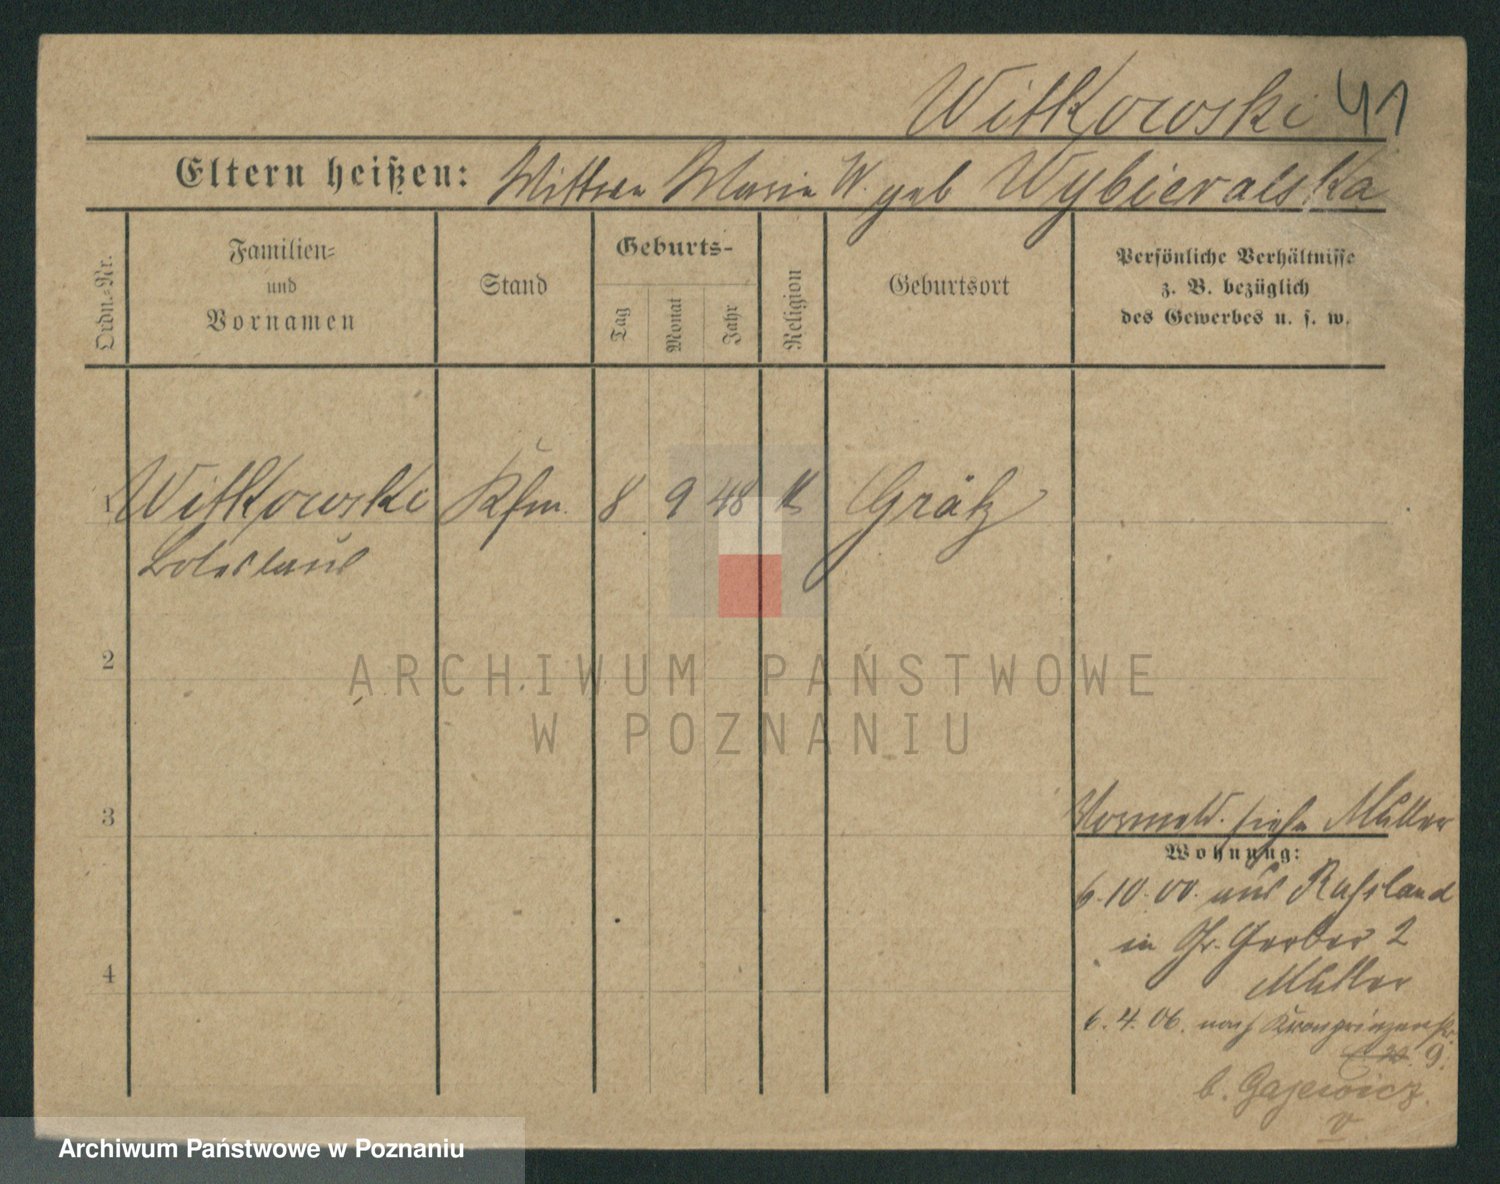 Witkowski 41
Eltern heißen: Wittwe Marie W. geb Wybieralska
Ordn.-Nr.
Familien-
und
Vornamen
Stand
Geburts-
Tag
Monat
Jahr
Religion
Geburtsort
Persönliche Verhältnisse
z. B. bezüglich
des Gewerbes u. s. w.
1 Witkowski Kfm. 8 9 48 k Grätz
Boleslaus
2
ARCHIWUM PAŃSTWOWE
W POZNANIU
3
Vormeld. siehe Müller
Wohnung:
6.10.00. aus Russland
in Gr. Gerber 2
4
Müller
6.4.06. nach Kronprinzenstr.
9.
b. Gajewicz.
Archiwum Państwowe w Poznaniu